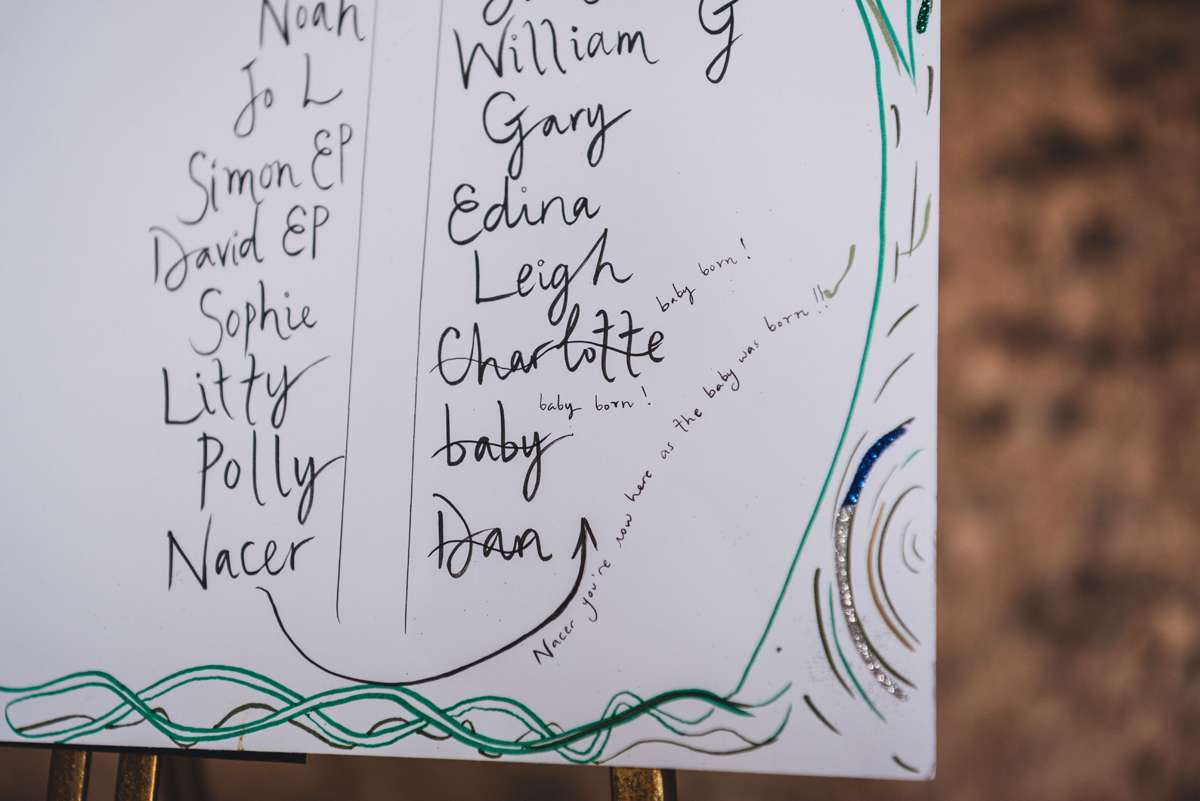 Noah
Jo L
Simon EP
David EP
Sophie
Litty
Polly
Nacer
William G
Gary
Edina
Leigh
Charlotte baby born!
baby baby born!
Dan
Nacer you're now here as the baby was born!!